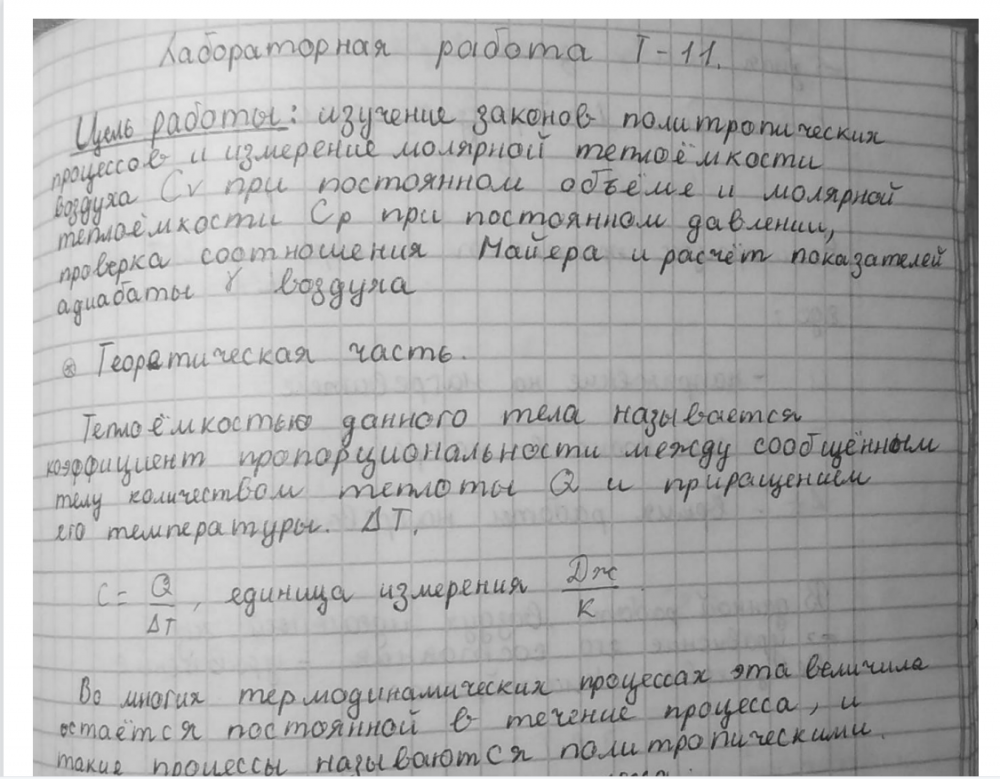 Лабораторная работа I-11.
Цель работы: изучение законов политропических
процессов и измерение молярной теплоёмкости
воздуха Cv при постоянном объёме и молярной
теплоёмкости Cp при постоянном давлении,
проверка соотношения Майера и расчёт показателей
адиабаты γ воздуха
⊗ Теоретическая часть.
Теплоёмкостью данного тела называется
коэффициент пропорциональности между сообщённым
телу количеством теплоты Q и приращением
его температуры. ΔT.
C = Q/ΔT, единица измерения Дж/К
Во многих термодинамических процессах эта величина
остаётся постоянной в течение процесса, и
такие процессы называются политропическими.